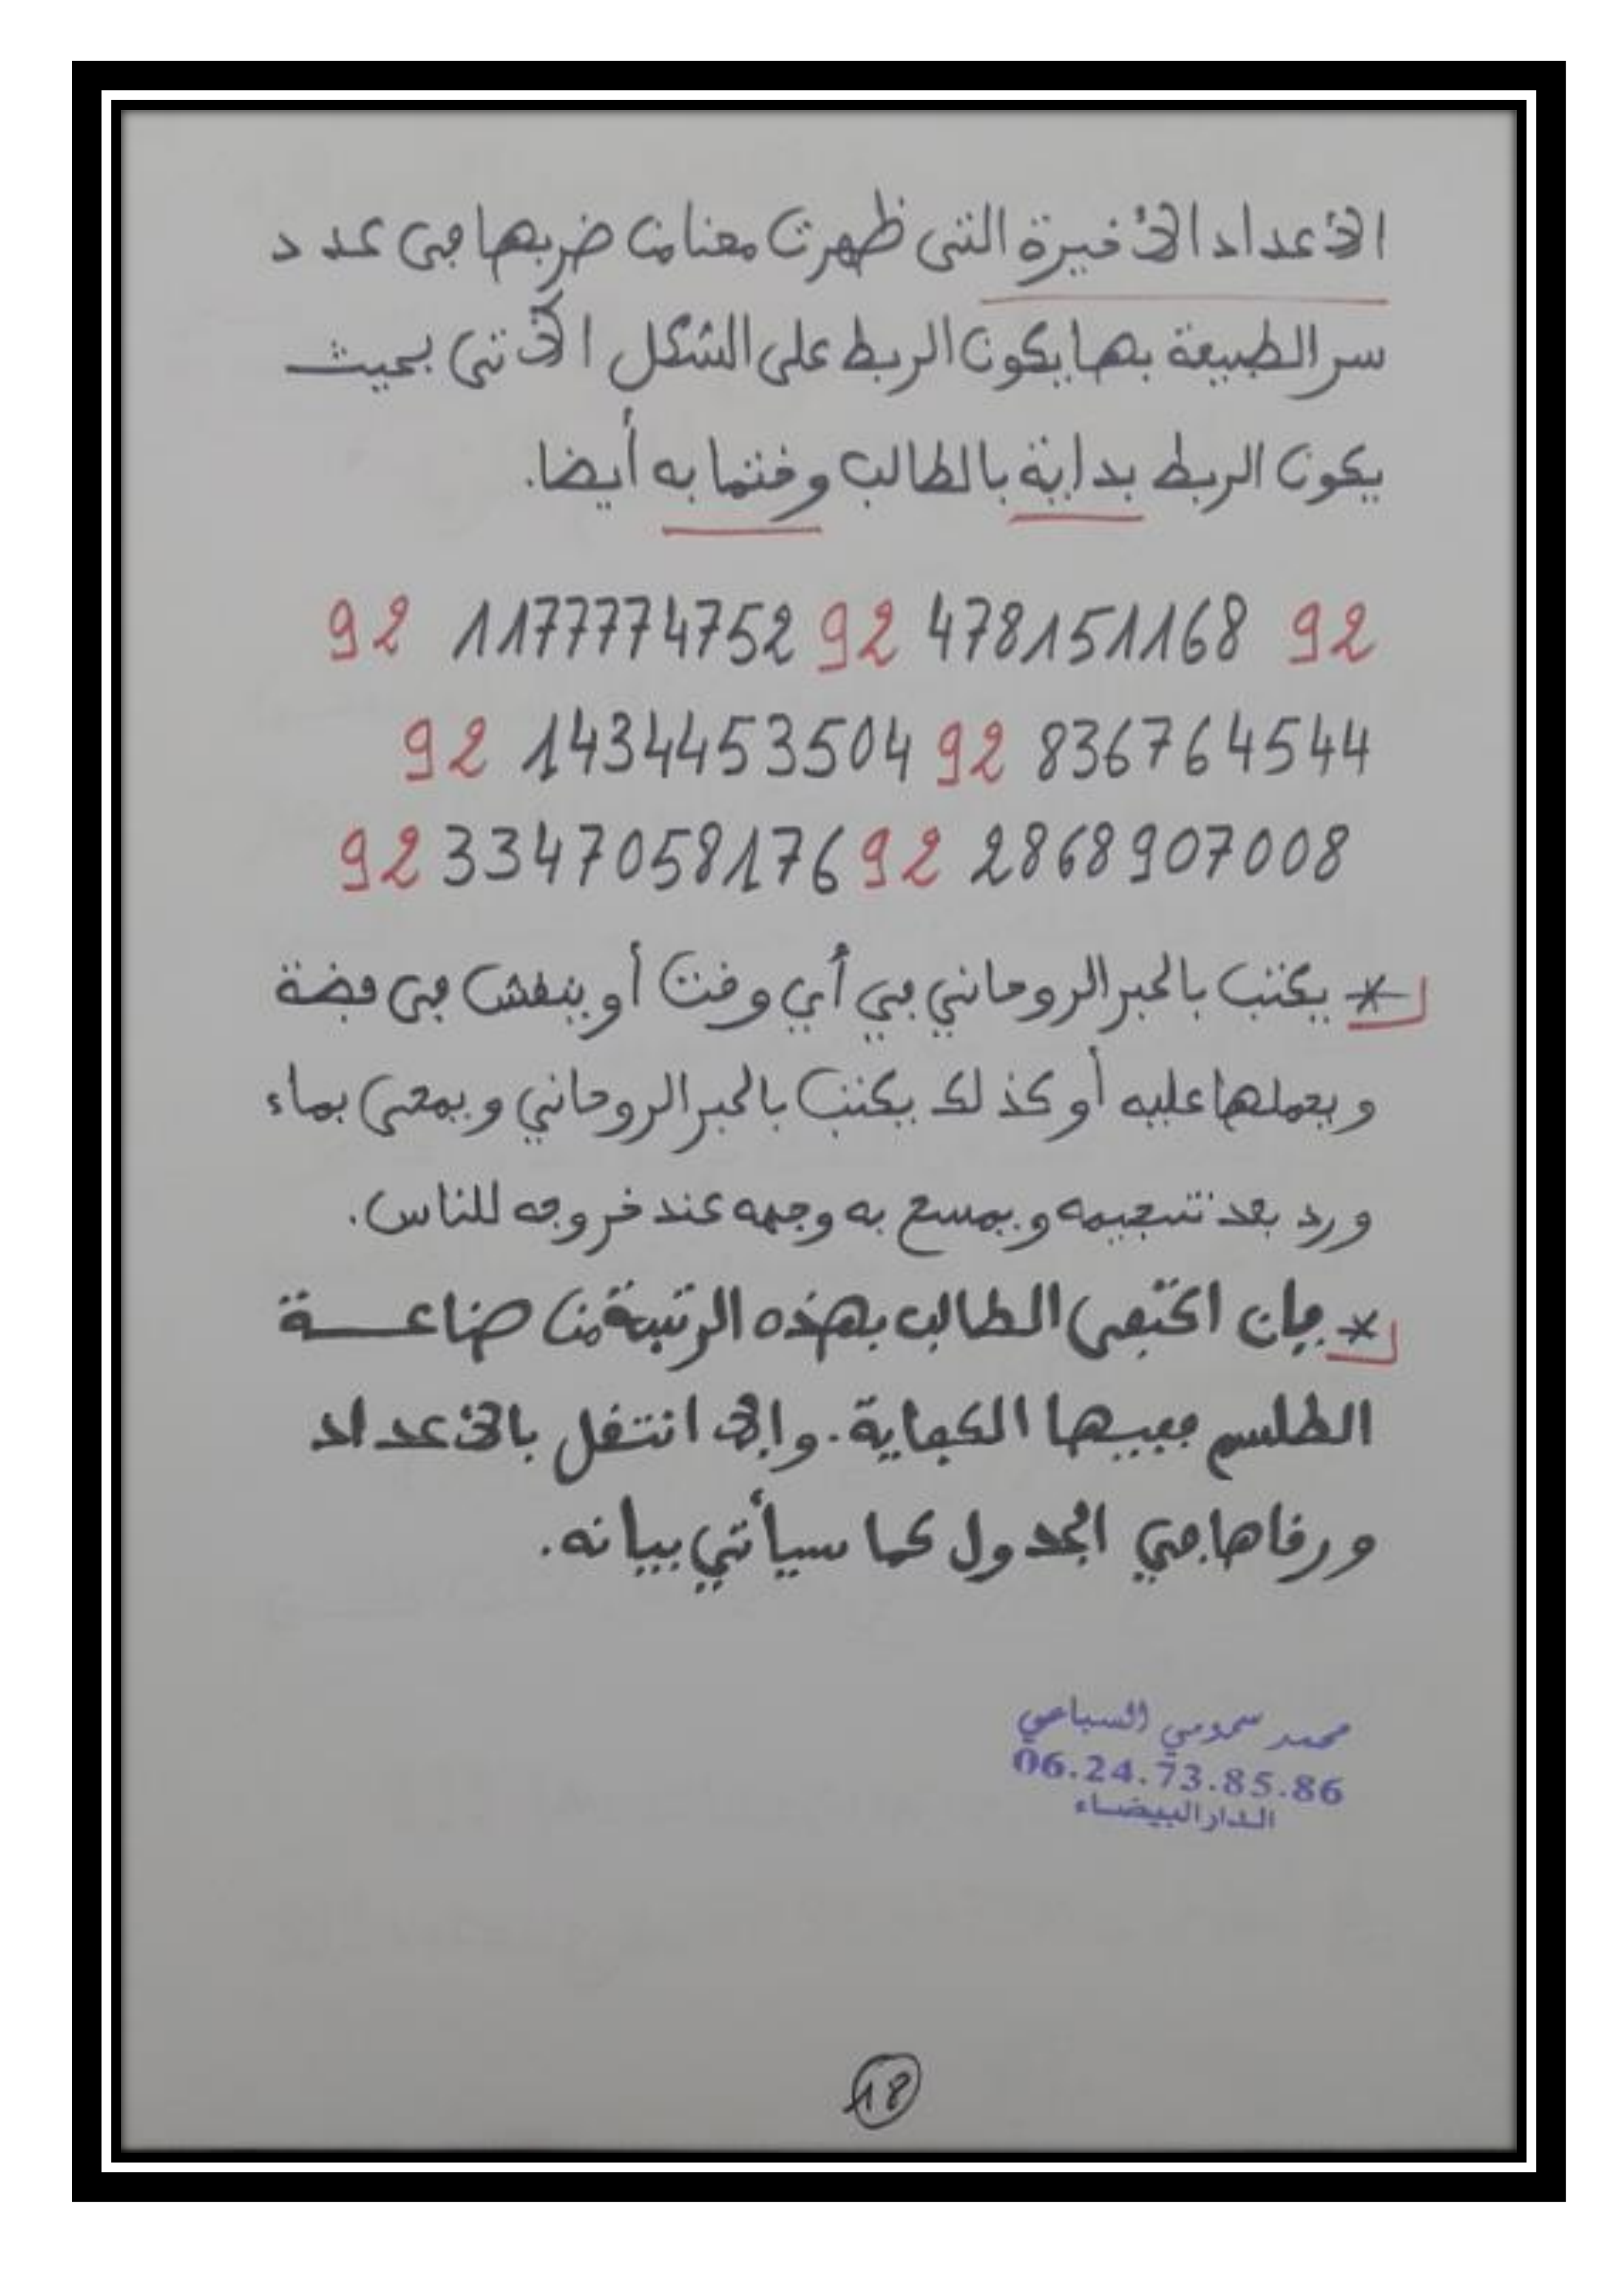 الأعداد الأخيرة التي ظهرت معنا من ضربها في عدد
سر الطبيعة بها يكون الربط على الشكل الآتي بحيث
يكون الربط بداية بالطالب وختما به أيضا.
92 1177774752 92 478151168 92
92 1434453504 92 836764544
92 3347058176 92 2868907008
* يكتب بالحبر الروحاني في أي وقت أو ينقش في فضة
ويحملها عليه أو كذلك يكتب بالحبر الروحاني ويمحى بماء
ورد بعد تنجيمه ويمسح به وجهه عند خروجه للناس.
* فإن اكتفى الطالب بهذه الرتبة من صناعة
الطلسم ففيها الكفاية. وإلا انتقل بالأعداد
ورقاها في الجدول كما سيأتي بيانه.
محمد سمومي السباعي
06.24.73.85.86
الدار البيضاء
18